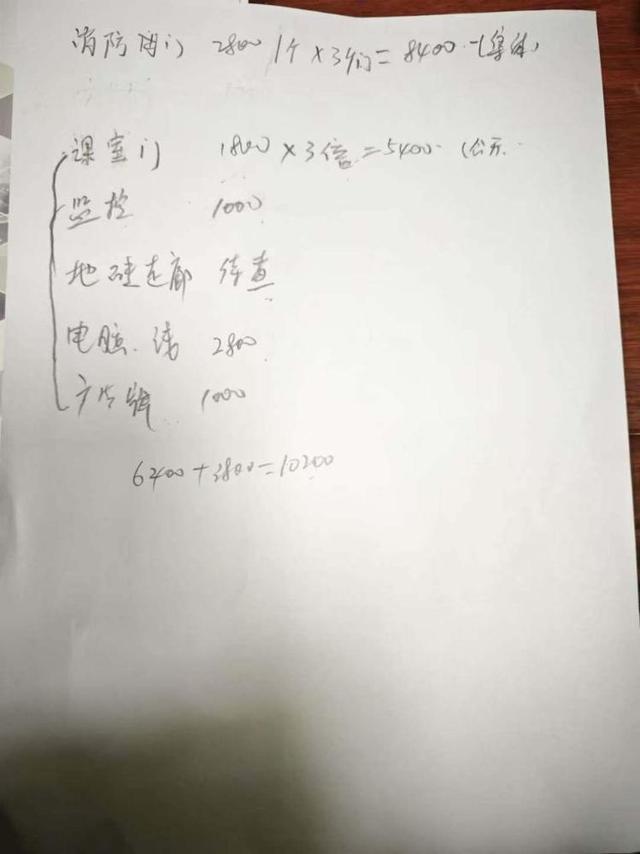 消防门 2800 1个×3个门=8400
课室门 1800×3倍=5400 (公开
监控 1000
地 连廊 待查
电脑、线 2800
广告牌 1000
6400+3800=10200